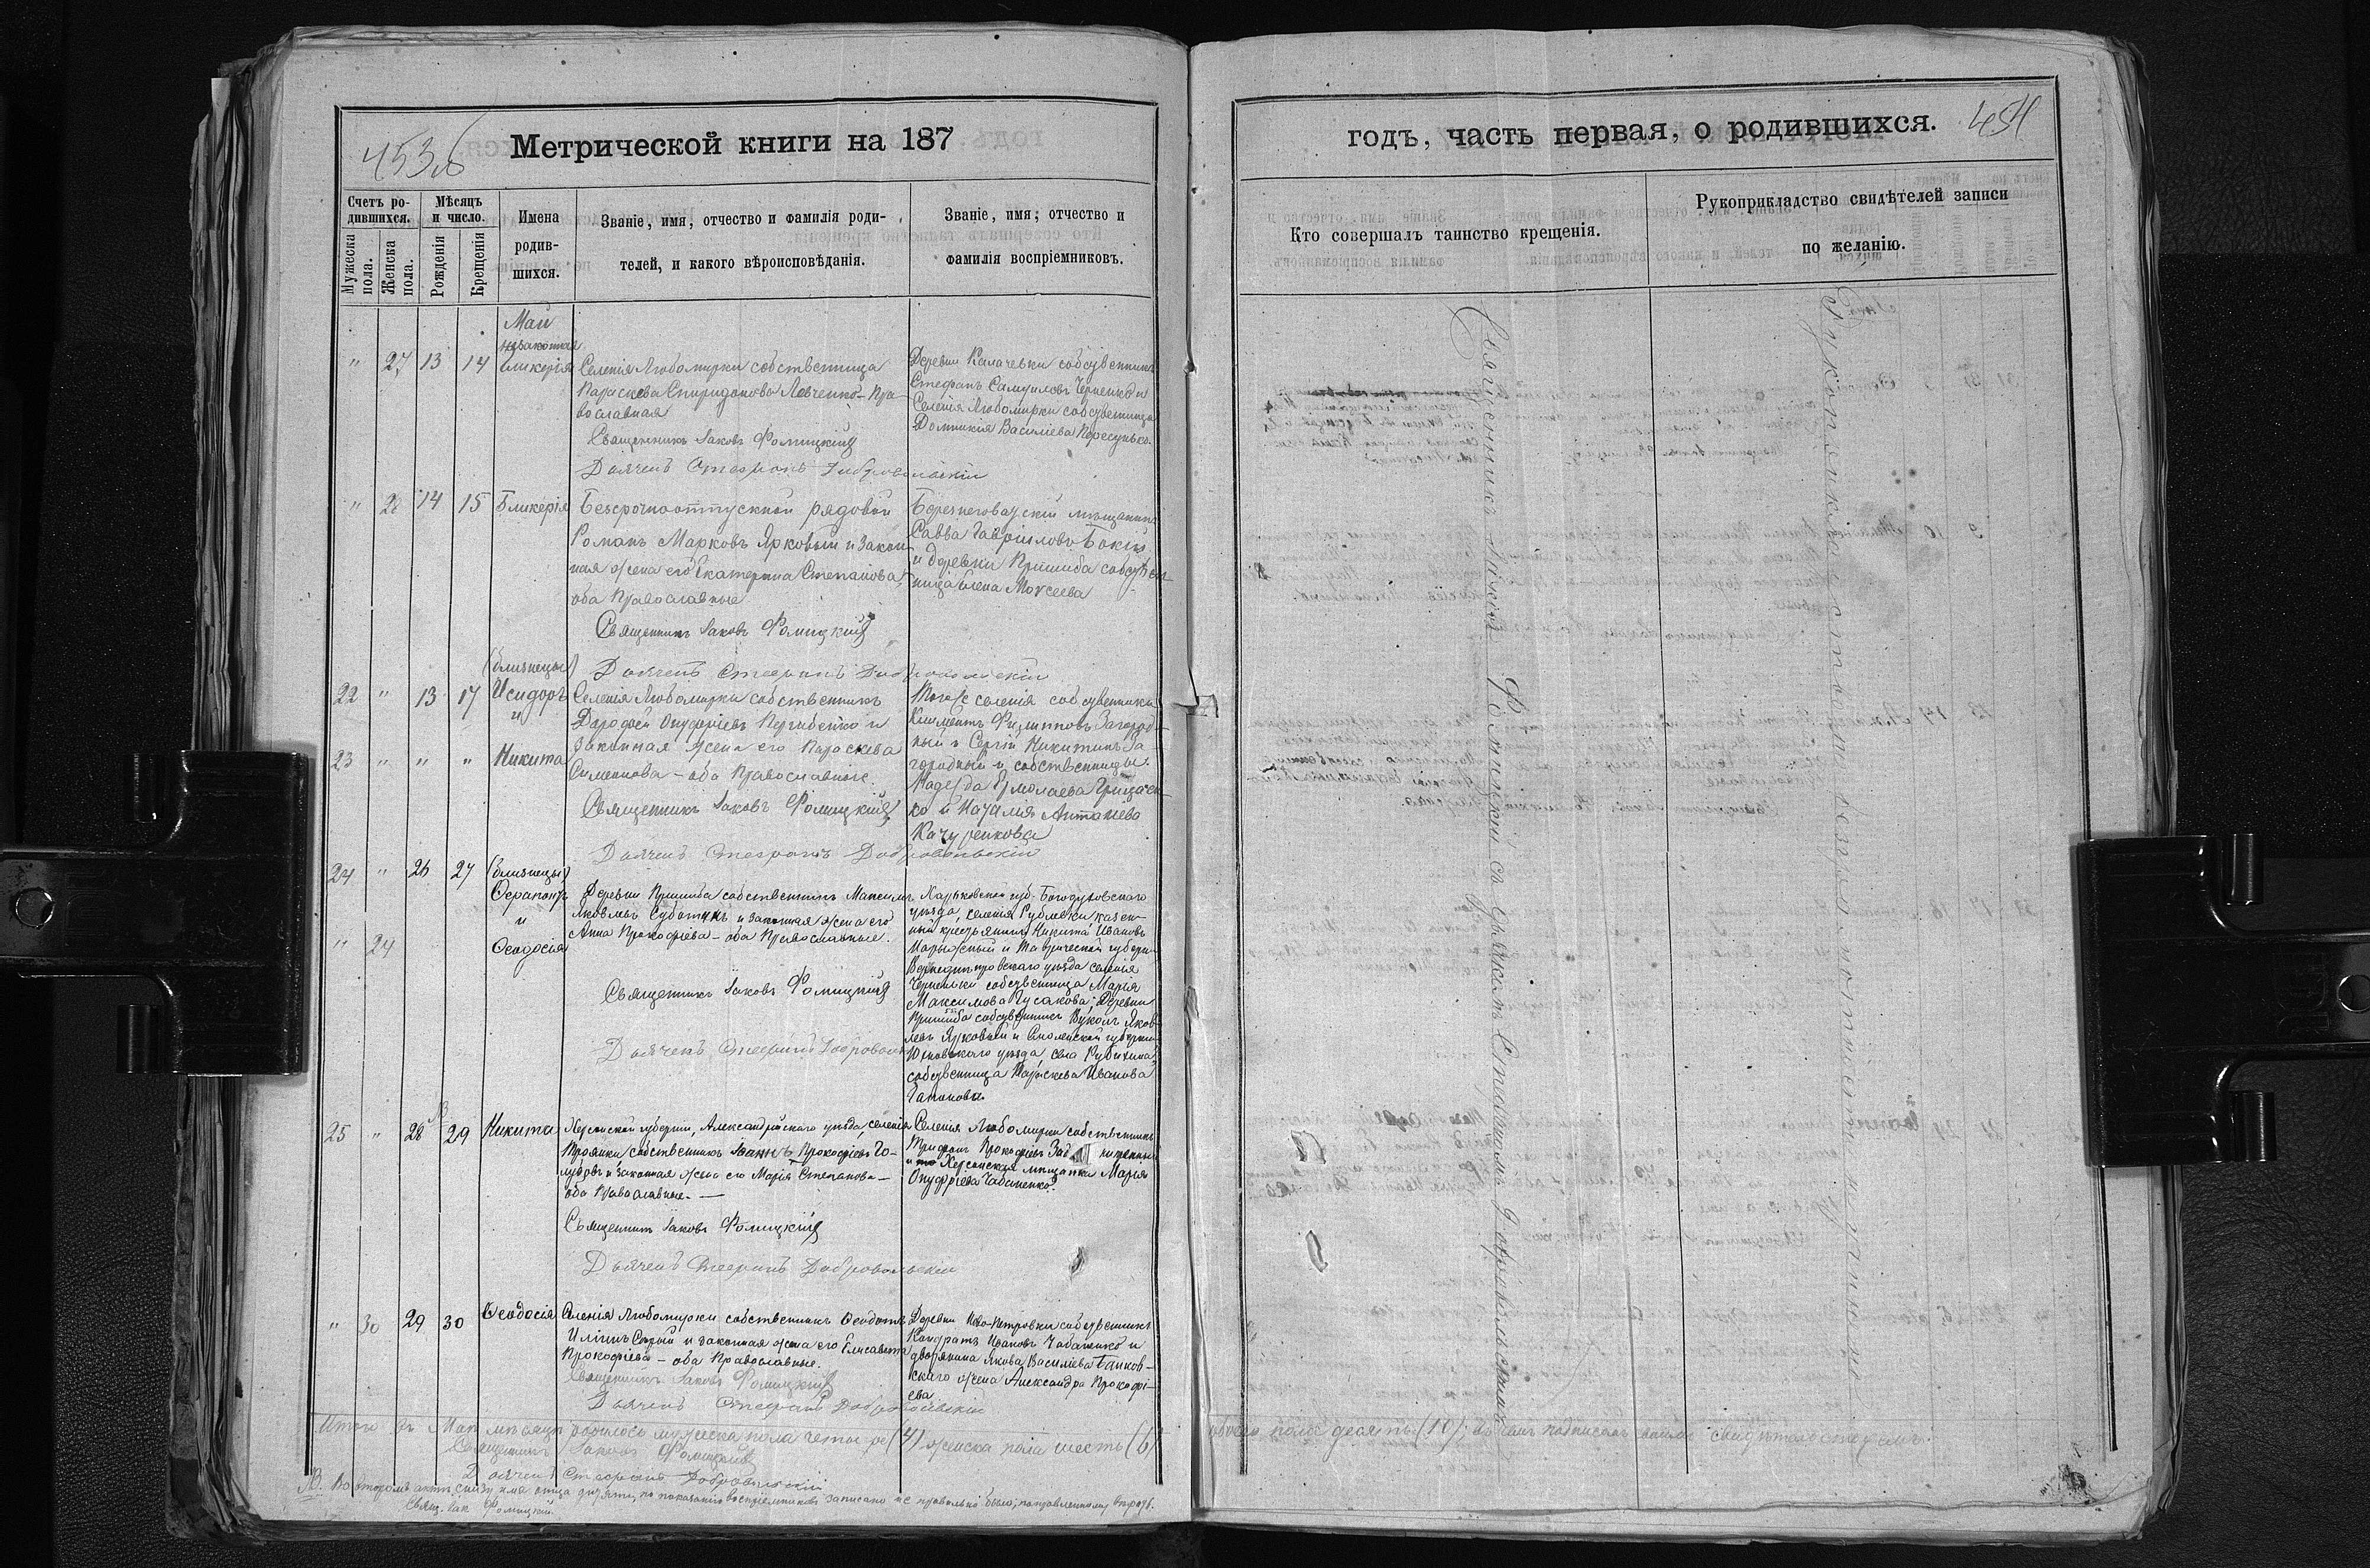 453об
Метрической книги на 187
Счетъ ро-
дившихся.
Мѣсяцъ
и число.
Мужеска
пола.
Женска
пола.
Рожденія
Крещенія
Имена
родив-
шихся.
Званіе, имя, отчество и фамилія роди-
телей, и какого вѣроисповѣданія.
Званіе, имя, отчество и
фамилія воспріемниковъ.
Май
незаконная
" 27 13 14 Гликерія
Селенія Любомирки собственница
Параскева Спиридонова Левченко - Пра-
вославная
Священникъ Іаковъ Фомицкій
Дьячекъ Стефанъ Добровольскій
Деревни Калачевки собственникъ
Стефанъ Самуиловъ Черненко и
Селенія Любомирки собственница
Домникія Василіева Пересунько.
" 28 14 15 Гликерія
Безсрочноотпускной рядовой
Романъ Марковъ Ярковый и закон-
ная жена его Екатерина Степанова,
оба Православные
Священникъ Іаковъ Фомицкій
Дьячекъ Стефанъ Добровольскій
Березнеговатскій мѣщанинъ
Савва Гавріиловъ Бокій
и деревни Пришиба собствен-
ница Елена Моѵсеева
(близнецы)
22 " 13 17 Исидоръ
и
23 " " " Никита
Селенія Любомирки собственникъ
Дороѳей Онуфріевъ Нерубенко и
законная жена его Параскева
Симеонова - оба Православные.
Священникъ Іаковъ Фомицкій
Дьячекъ Стефанъ Добровольскій
Того же селенія собственники
Климентъ Филипповъ Загород-
ный и Сергій Никитинъ За-
городный и собственницы
Надежда Ермолаева Грицаен-
ко и Наталія Антонева
Качуренкова
24 " 26 27 (близнецы)
Ѳерапонтъ
и
" 24 Ѳеодосія
Деревни Пришиба собственникъ Максимъ
Яковлевъ Суботинъ и законная жена его
Анна Прокофіева - оба Православные.
Священникъ Іаковъ Фомицкій
Дьячекъ Стефанъ Добровольскій
Харьковской губ. Богодуховскаго
уѣзда, селенія Рублевки казен-
ный крестьянинъ Никита Ивановъ
и Таврической губерніи
Верхнеднѣпровскаго уѣзда селенія
собственница Марія
Максимова Гусакова; Деревни
Пришиба собственникъ Вуколъ Яков-
левъ Ярковый и Смоленской губерніи
Юхновскаго уѣзда, села
собственница Параскева Иванова
Гапонова.
25 " 28 29 Никита
Херсонской губерніи, Александрійскаго уѣзда, селенія
Троянки собственникъ Іоаннъ Прокофіевъ Го-
лубовъ и законная жена его Марія Степанова -
оба Православные. —
Священникъ Іаковъ Фомицкій
Дьячекъ Стефанъ Добровольскій
Селенія Любомирки собственникъ
Трифонъ Прокофіевъ
и Херсонская мѣщанка Марія
Онуфріева Чабаненко.
" 30 29 30 Ѳеодосія
Селенія Любомирки собственникъ Ѳеодотъ
Иліинъ Сѣрый и законная жена его Елисавета
Прокофіева - оба Православные.
Священникъ Іаковъ Фомицкій
Дьячекъ Стефанъ Добровольскій
Деревни Ново-Петровки собственникъ
Кондратъ Ивановъ Чабаненко и
дворянина Якова Василіева Банков-
скаго жена Александра Прокофі-
ева
Итого въ Маѣ мѣсяцѣ родилось мужеска пола четыре (4) женска пола шесть (6)
Священникъ Іаковъ Фомицкій
Дьячекъ Стефанъ Добровольскій
NB. Во второмъ актѣ снизу имя отца дитяти, по показанію воспріемниковъ записано не правильно было,
Свящ. Іак. Фомицкій.
годъ, часть первая, о родившихся.
454
Кто совершалъ таинство крещенія.
Рукоприкладство свидѣтелей записи
по желанію.
Священникъ Іаковъ Фомицкій съ дьячкомъ Стефаномъ Добровольскимъ
обоего пола десять (10); въ чемъ подписомъ нашимъ свидѣтельствуемъ.